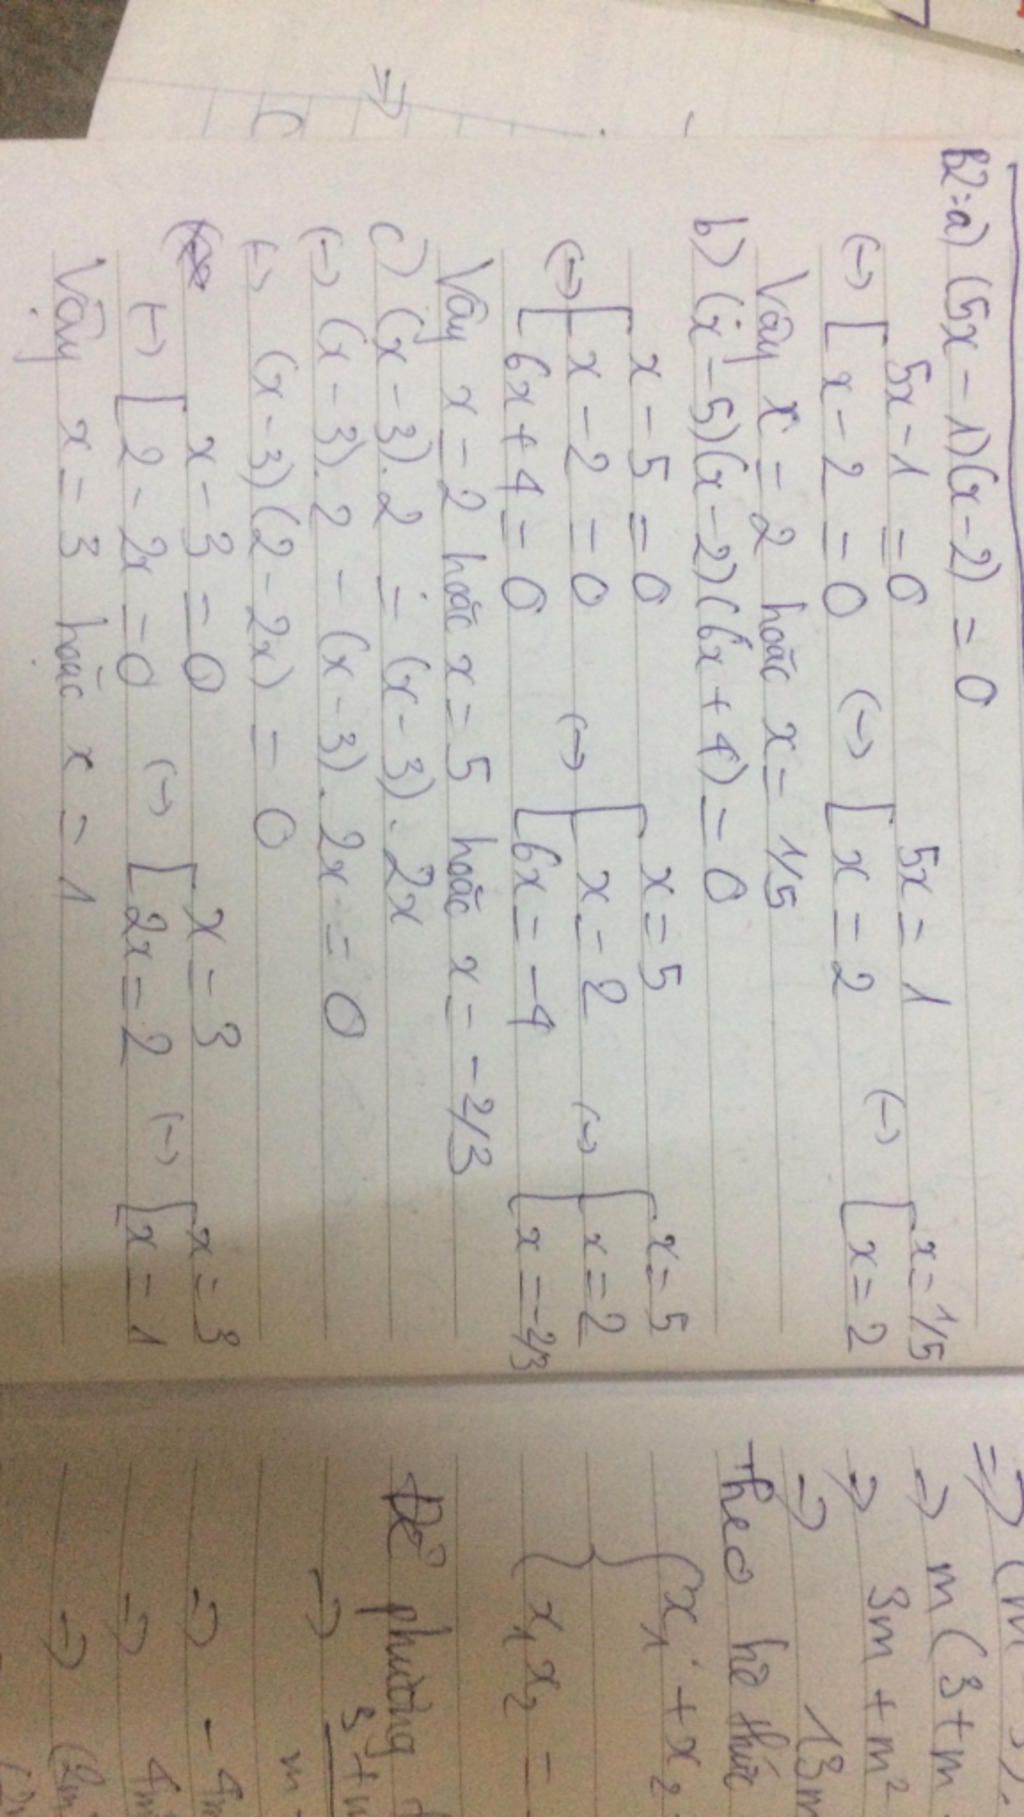 B2: a) (5x - 1)(x - 2) = 0
(->) [ 5x - 1 = 0
x - 2 = 0 (->) [ 5x = 1
x = 2 (->) [ x = 1/5
x = 2
Vậy x = 2 hoặc x = 1/5
b) (x - 5)(x - 2)(6x + 4) = 0
(->) [ x - 5 = 0
x - 2 = 0
6x + 4 = 0 (->) [ x = 5
x = 2
6x = -4 (->) [ x = 5
x = 2
x = -2/3
Vậy x = 2 hoặc x = 5 hoặc x = -2/3
c) (x - 3).2 = (x - 3).2x
(->) (x - 3).2 - (x - 3).2x = 0
(->) (x - 3)(2 - 2x) = 0
(->) [ x - 3 = 0
2 - 2x = 0 (->) [ x = 3
2x = 2 (->) [ x = 3
x = 1
Vậy x = 3 hoặc x = 1
=> m(3 + m
=> 3m + m²
=> 13m
Theo hệ thức
{ x₁ + x₂
x₁x₂ =
Để phường
=> 3 + m
m
=> -4m
=> 4m
=> (2m